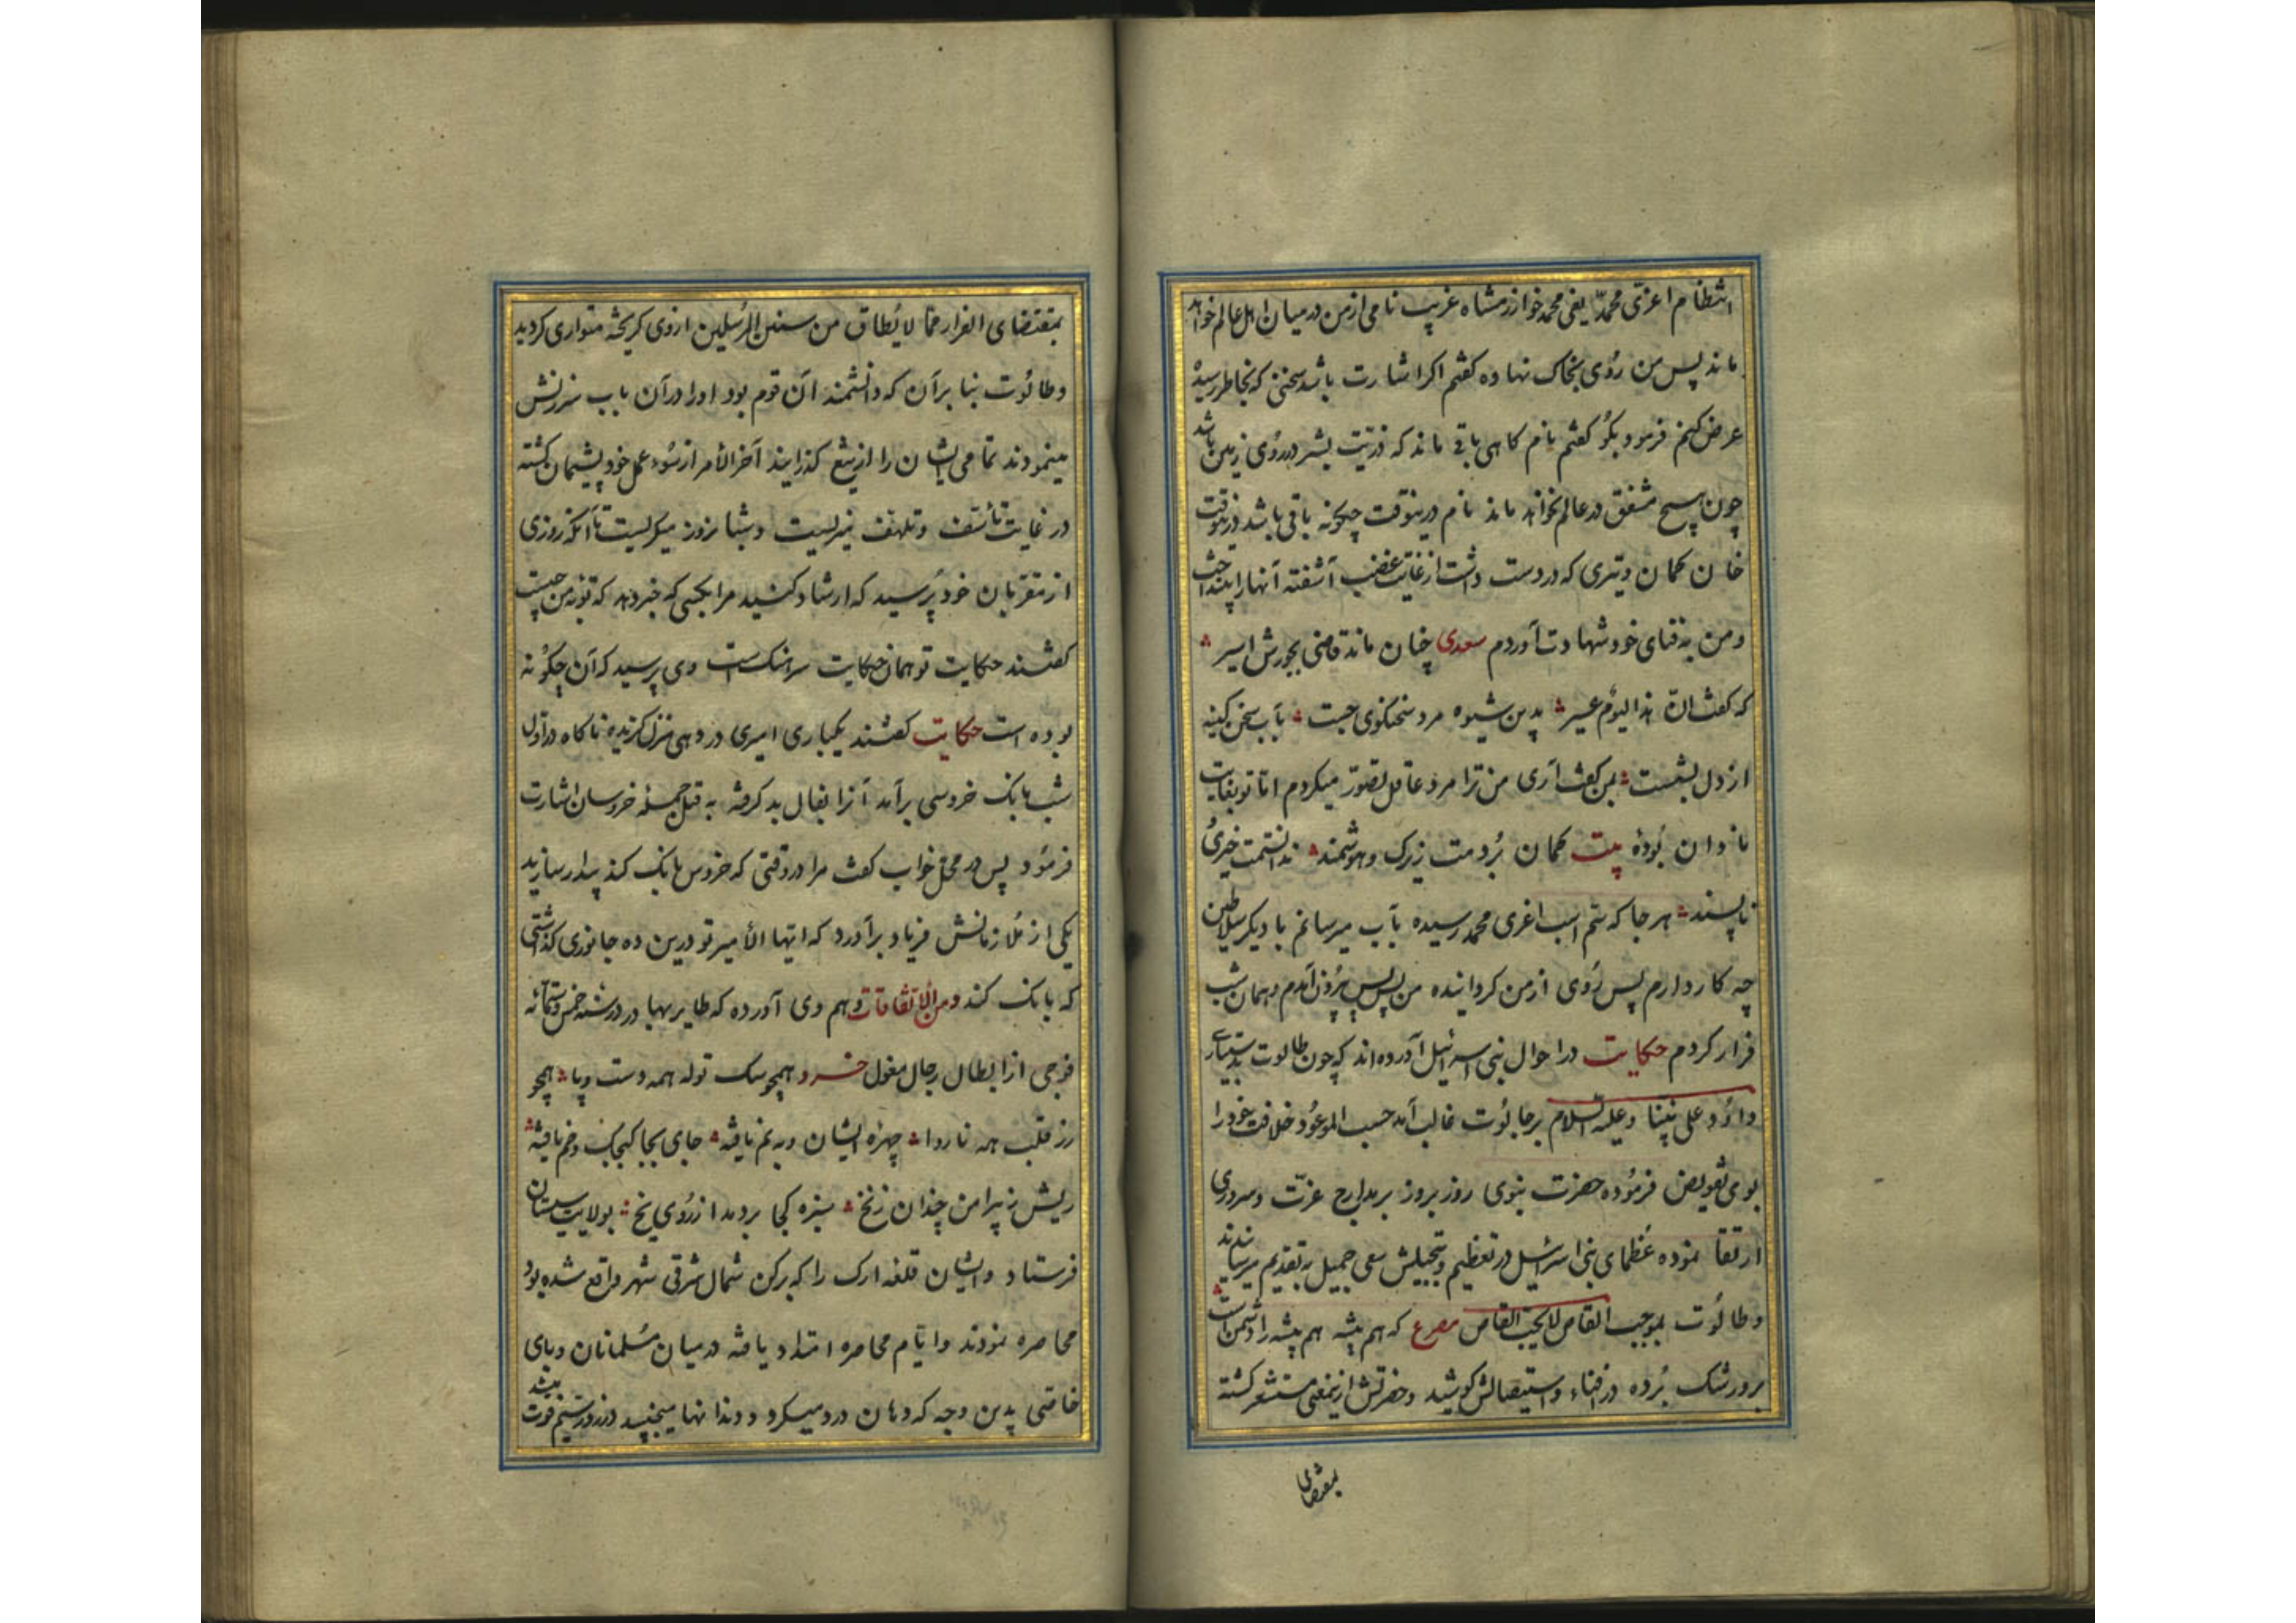 انتظام اغری محمد یعنی محمد خوارزمشاه غریب نامی از من در میان اهل عالم خواهد
ماند پس من روی بخاک نهاده کفتم اکر اشارت باشد سخنی که بخاطر رسیده
عرض کنم فرمود بکو کفتم نام کاهی باقی ماند که ذریت بشر در روی زمین باشد
چون هیچ متنفس در عالم نخواهد ماند نام درینوقت چکونه باقی باشد درینوقت
خان کمان و تیری که در دست داشت از غایت غضب آشفته آنها را بینداخت
ومن به فنای خود شهادت آوردم سعدی چنان ماند قاضی بجورش اسیر
که کفت ان هذا لیوم عسیر بدین شیوه مرد سخنکوی چست بآب سخن کینه
از دل بشست بمن کفت آری من ترا مرد عاقل تصور میکردم اما تو بغایت
نادان بوده بیت کمان بردمت زیرک و هوشمند ندانستمت خیری
ناپسند هر جا که سم اسب اغری محمد رسیده بآب میرسانم با دیکر سلاطین
چه کار دارم پس روی از من کردانیده من پس پس برون آمدم و همان شب
فرار کردم حکایت در احوال بنی اسرائیل آورده‌اند که چون طالوت بدستیاری
داؤد علی نبینا وعلیه السلام بر جالوت غالب آمد حسب الموعود خلافت خود را
بوی تفویض فرموده حضرت نبوی روز بروز بر مدارج عزت و سروری
ارتقا نموده عظمای بنی اسرائیل در تعظیم و تبجیلش سعی جمیل به تقدیم میرسانیدند
وطالوت بموجب القاص لایحب القاص مصرع که هم پیشه هم پیشه را دشمن است
برو رشک برده در افناء و استیصالش کوشید و حضرتش ازینمعنی مستشعر کشته
بمقتضای
بمقتضای الفرار مما لا یطاق من سنن المرسلین ازوی کریخته متواری کردید
وطالوت بنا برآن که دانشمند آن قوم بود او را در آن باب سرزنش
مینمودند تمامی ایشان را از تیغ کذرانید آخر الأمر از سوء عمل خود پشیمان کشته
در غایت تأسف و تلهف میزیست و شبا نروز میکریست تا آنکه روزی
از مقربان خود پرسید که ارشاد کنید مرا بکسی که خبر دهد که توبه من چیست
کفتند حکایت تو همان حکایت سرهنک است وی پرسید که آن چکونه
بوده است حکایت کفتند یکباری امیری در دهی منزل کزیده ناکاه در اول
شب بانک خروسی برآمد آنرا بفال بد کرفته به قتل جمله خروسان اشارت
فرمود پس در محل خواب کفت مرا در وقتی که خروس بانک کند بیدار سازید
یکی از ملازمانش فریاد برآورد که ایها الأمیر تو درین ده جانوری کذاشتی
که بانک کند ومن الاتفاقات وهم وی آورده که طایر بهادر در سنه خمس وستمائه
فوجی از ابطال رجال مغول خسرو همچو سک توله همه دست و پا همچو
زر قلب همه ناروا چهره ایشان وبه نم یافته جای بجا کنجک و خم یافته
ریش نه پیرامن چندان زنخ سبزه کجا بردمد از روی یخ بولایت سیستان
فرستاد وایشان قلعه ارک را که برکن شمال شرقی شهر واقع شده بود
محاصره نمودند وایام محاصره امتداد یافته در میان مسلمانان وبای
خاصی بدین وجه که دهان درد میکرد و دندانها میجنبید و در روز سیم فوت میشد